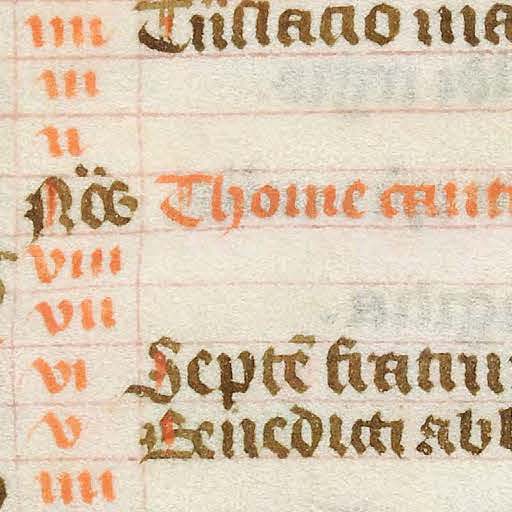 iiii Tñslatio ma
iii
ii
Nos Thome cant
viii
vii
vi Septē fratru
v Benedicti abb
iiii